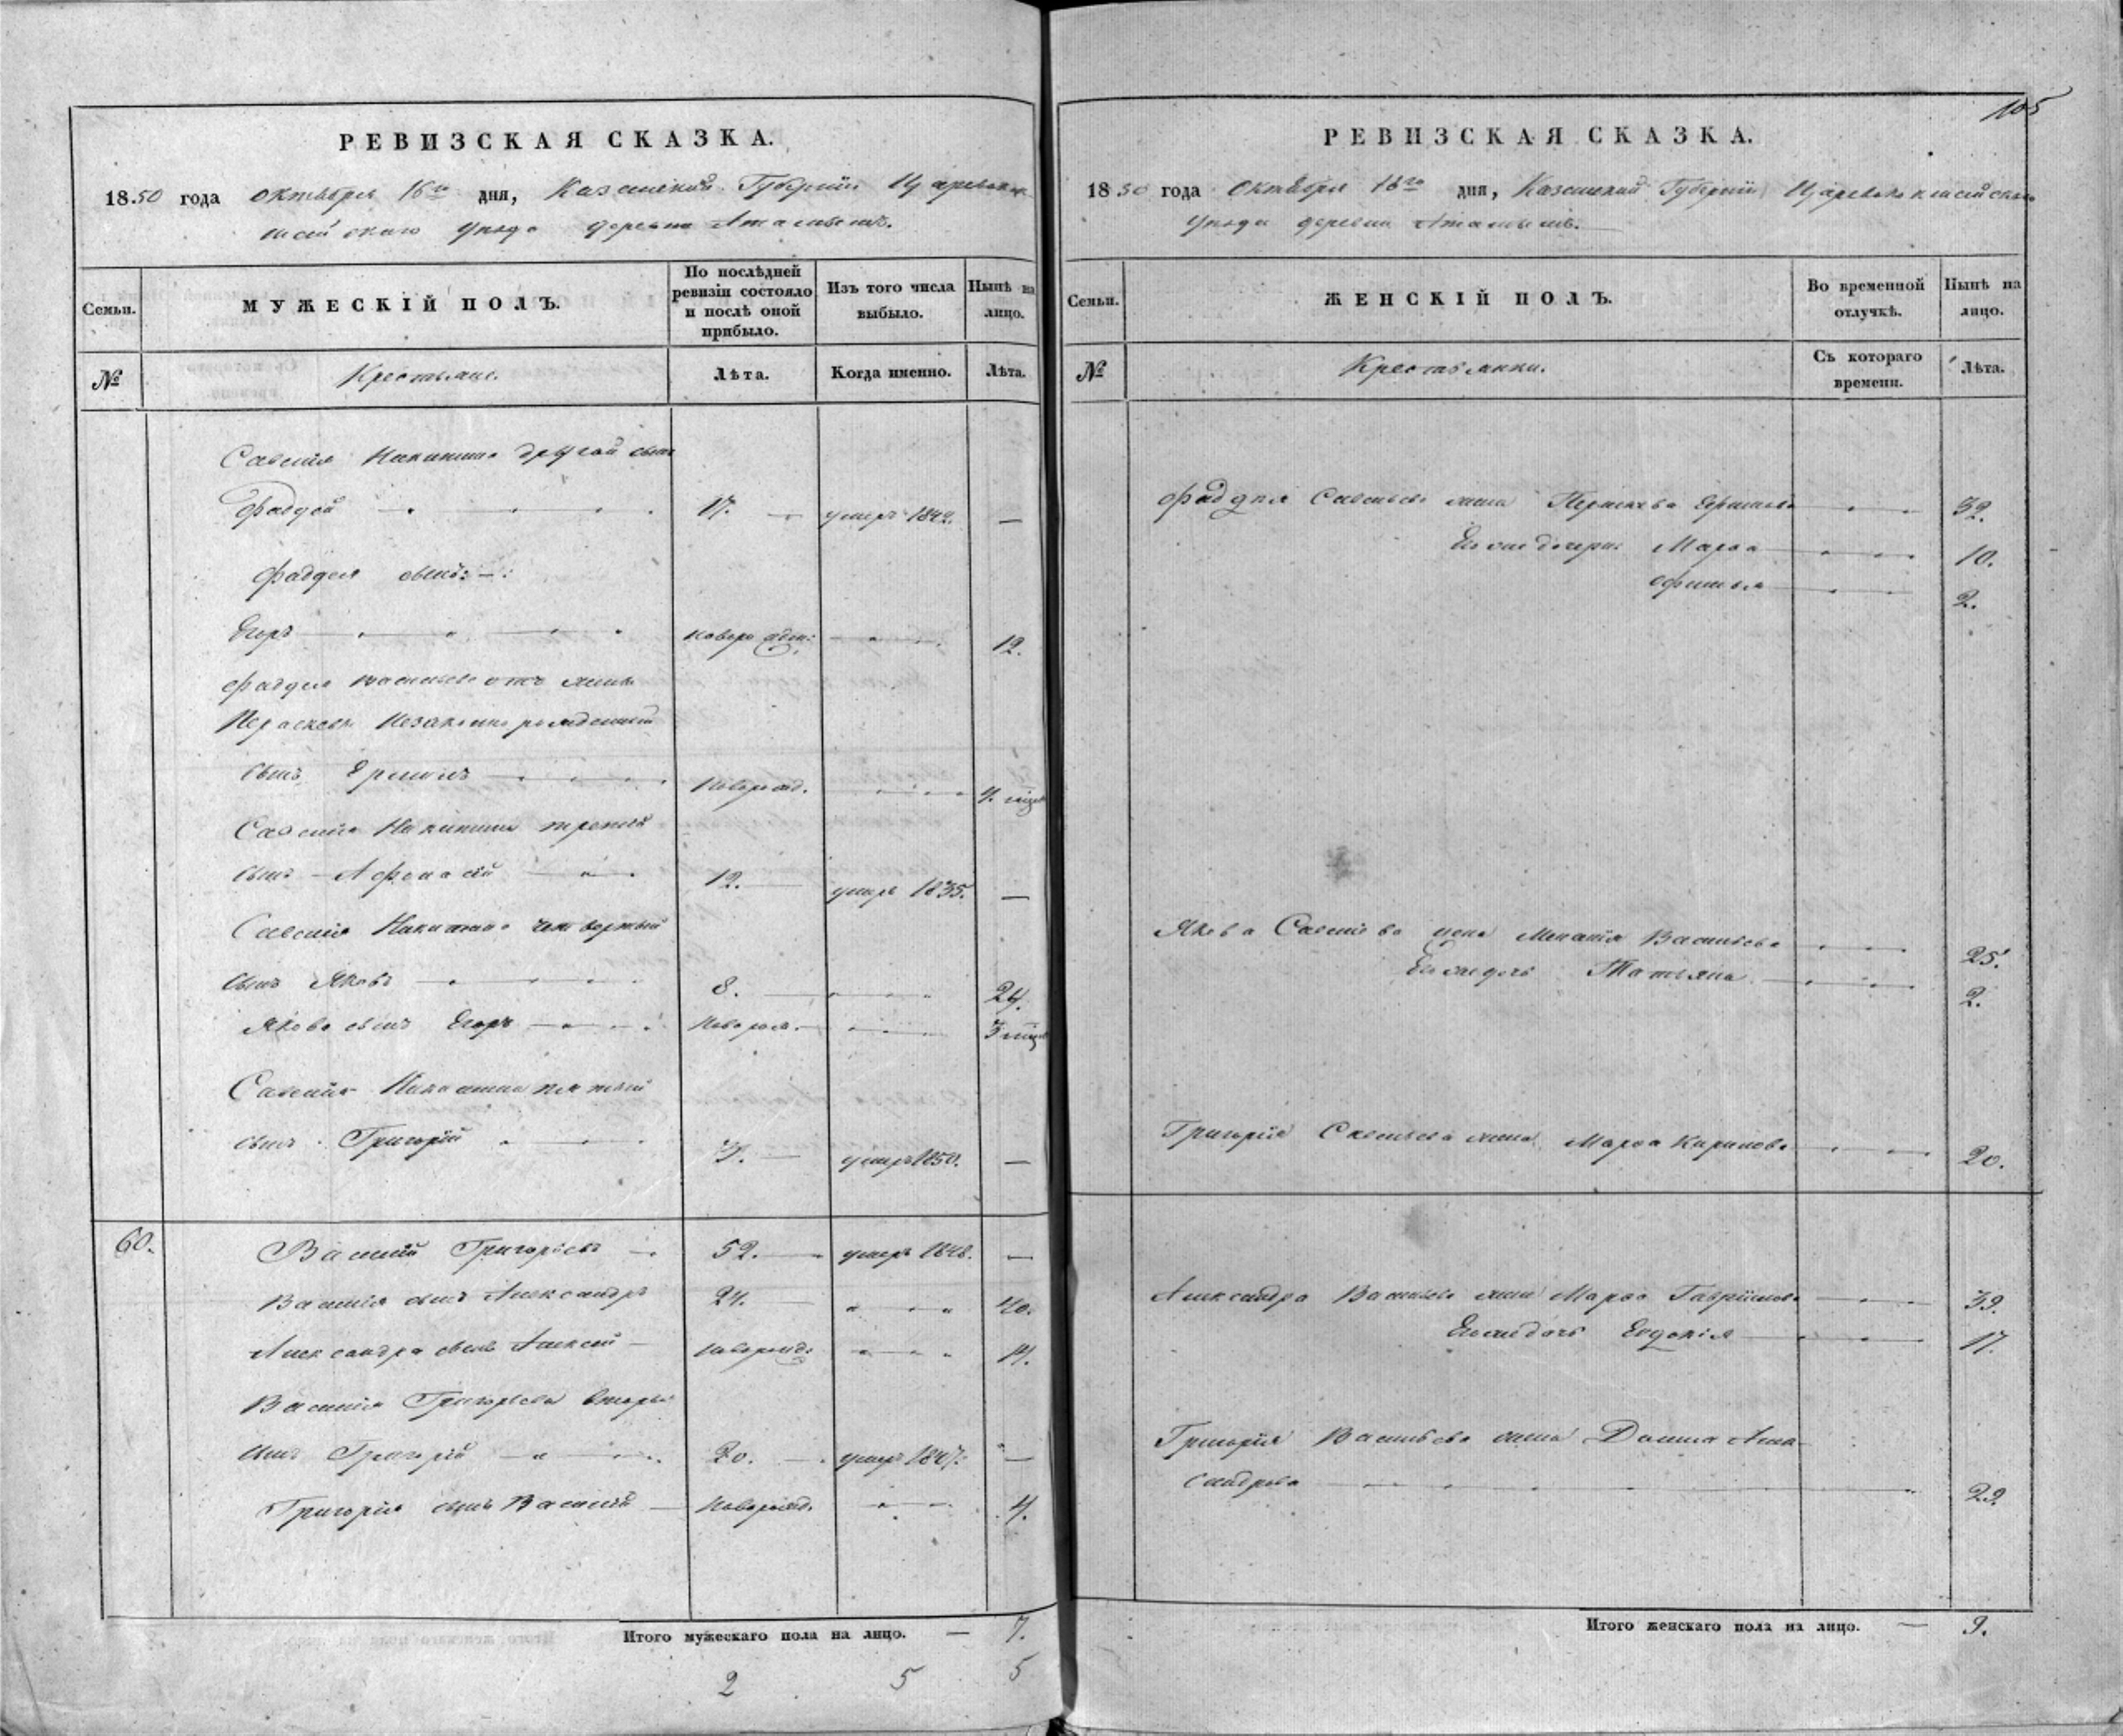 РЕВИЗСКАЯ СКАЗКА.
1850 года октября 16го дня, Казанской Губернии Царевокок
шайскаго уезда деревни
Семьи.
МУЖЕСКІЙ ПОЛЪ.
По послѣдней ревизіи состояло и послѣ оной прибыло.
Изъ того числа выбыло.
Нынѣ на лицо.
№
Крестьяне.
Лѣта.
Когда именно.
Лѣта.
Савелія Никитина другой сынъ
Фадѣй 17. умеръ 1842. —
Фадѣя сынъ:
Егоръ новорожден: 12.
Фадѣя жены
Парасковьи незаконно рожденный
сынъ новорожд. 4.
Савелія Никитина третій
сынъ Афонасій 12. умеръ 1835. —
Савелія Никитина четвертый
сынъ Яковъ 8. 24.
Якова сынъ Егоръ новорож. 3
Савелія Никитина пятый
сынъ Григорій 3. умеръ 1850. —
60. Василій Григорьевъ 52. умеръ 1848. —
Василія сынъ Александръ 24. 40.
Александра сынъ Алексей новорожд. 14.
Василія Григорьева вторый
сынъ Григорій 20. умеръ 1847. —
Григорія сынъ Василій новорожд. 4.
Итого мужескаго пола на лицо. — 7.
2 5 5
105
РЕВИЗСКАЯ СКАЗКА.
1850 года Октября 16го дня, Казанской Губерніи Царевококшайскаго
уезда деревни
Семьи.
ЖЕНСКІЙ ПОЛЪ.
Во временной отлучкѣ.
Нынѣ на лицо.
№
Крестьянки.
Съ котораго времени.
Лѣта.
Фадѣя Савельева жена 32.
Его же дочери: Марѳа 10.
2.
Якова Савельева жена Васильева 25.
Его же дочь Татьяна 2.
Григорія Савельева жена Марѳа Кирилова 20.
Александра Васильева жена Марѳа Гаврилова 39.
Его же дочь Евдокія 17.
Григорія Васильева жена
сандрова 29.
Итого женскаго пола на лицо. — 9.